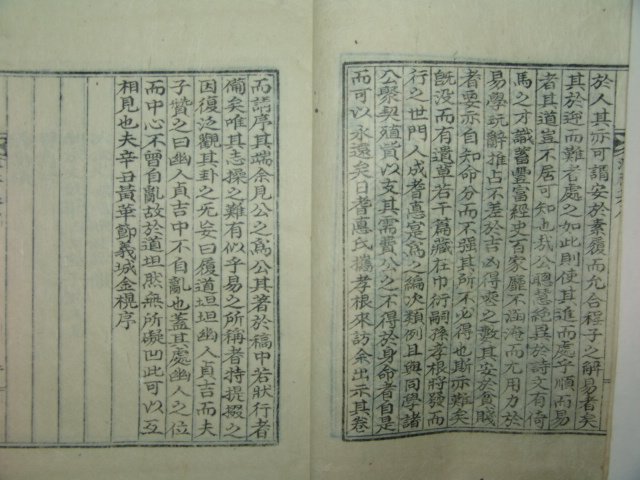 於人其亦可謂安於素履而允合程子之解易者矣
其於迎而難者處之如此則使其進而處乎順而易
者其道豈不居可知也哉公聰慧絶異於詩文有倚
馬之才識蓄豐富經史百家靡不涵淹而尤用力於
易學玩辭推占不差於吉凶得喪之數其安於貧賤
者要亦自知命分而不强其所不必得也斯亦難矣
旣没而有遺草若干篇藏在巾衍嗣孫孝根將發而
行之世門人成耆悳寔爲之編次類例且與同學諸
公聚契殖貲以支其需費公之不得於身命者自是
而可以永遠矣日耆悳氏携孝根來訪余出示其卷
而請序其端余見公之爲公其著於稿中若狀行者
備矣唯其志操之難有似乎易之所稱者特提掇之
因復泛觀其卦之死安曰履道坦坦幽人貞吉而夫
子贊之曰幽人貞吉中不自亂也蓋其處幽人之位
而中心不曾自亂故於道坦然無所礙凹此可以互
相見也夫辛丑黃華節義城金榥序